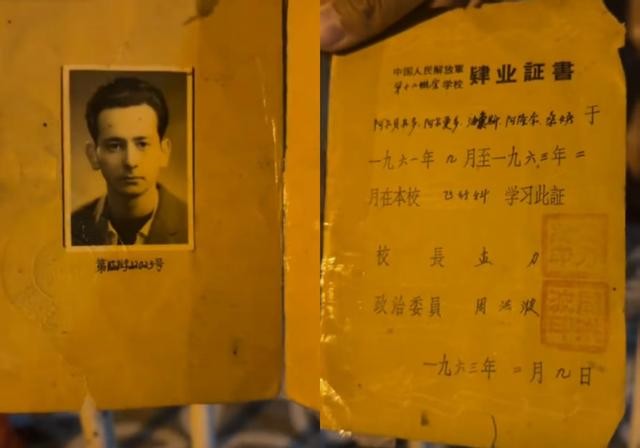 第22023号
中国人民解放軍
第十二航空学校 肄业証書
于
一九六一年九月至一九六三年二
月在本校 飞行科 学习此証
校長 孟力
政治委員 周洪波
一九六三年二月九日